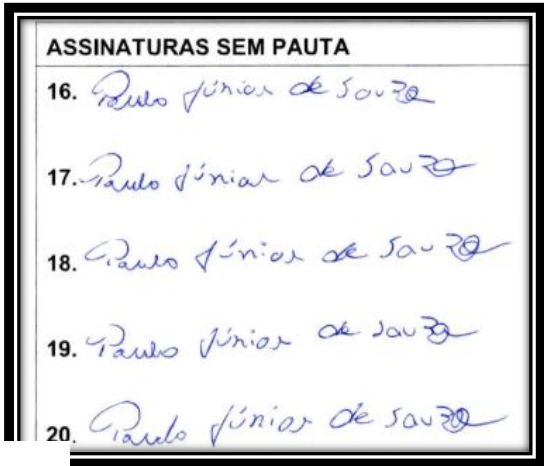 ASSINATURAS SEM PAUTA
16. Paulo Júnior de Souza
17. Paulo Júnior de Souza
18. Paulo Júnior de Souza
19. Paulo Júnior de Souza
20. Paulo Júnior de Souza